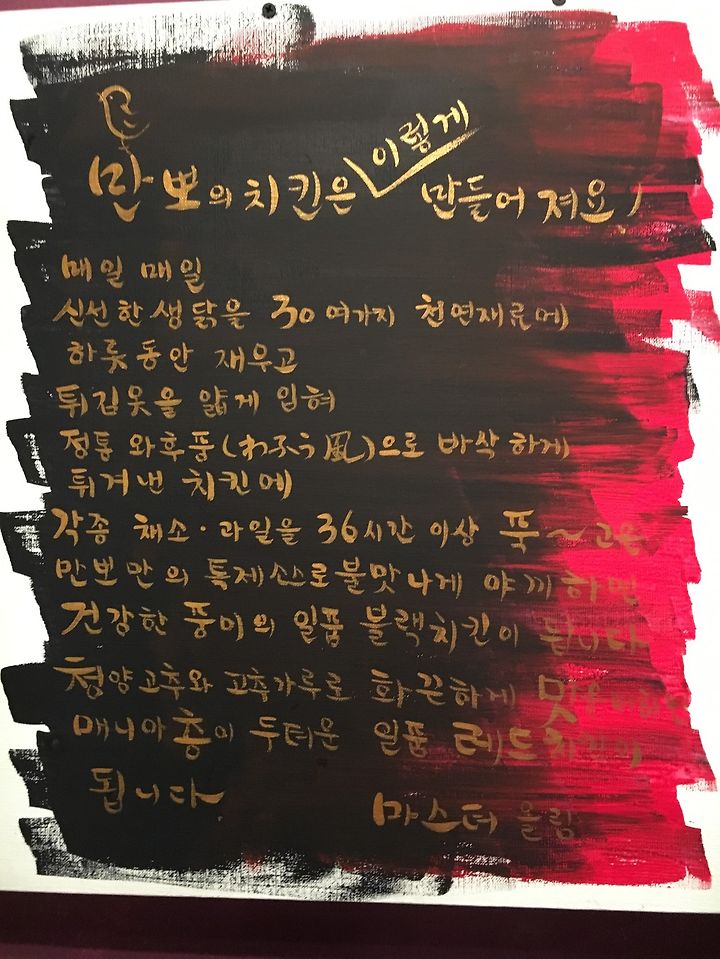 만뽀의 치킨은 이렇게 만들어 져요!
매일 매일
신선한 생닭을 30여가지 천연재료에
하룻동안 재우고
튀김옷을 얇게 입혀
정통 와후풍(わふう風)으로 바삭하게
튀겨낸 치킨에
각종 채소·과일을 36시간 이상 푹~고은
만뽀만의 특제소스로 불맛나게 야끼하면
건강한 풍미의 일품 블랙치킨이 됩니다
청양고추와 고춧가루로 화끈하게 맛을
매니아층이 두터운 일품 레드치킨이
됩니다.
마스터 올림